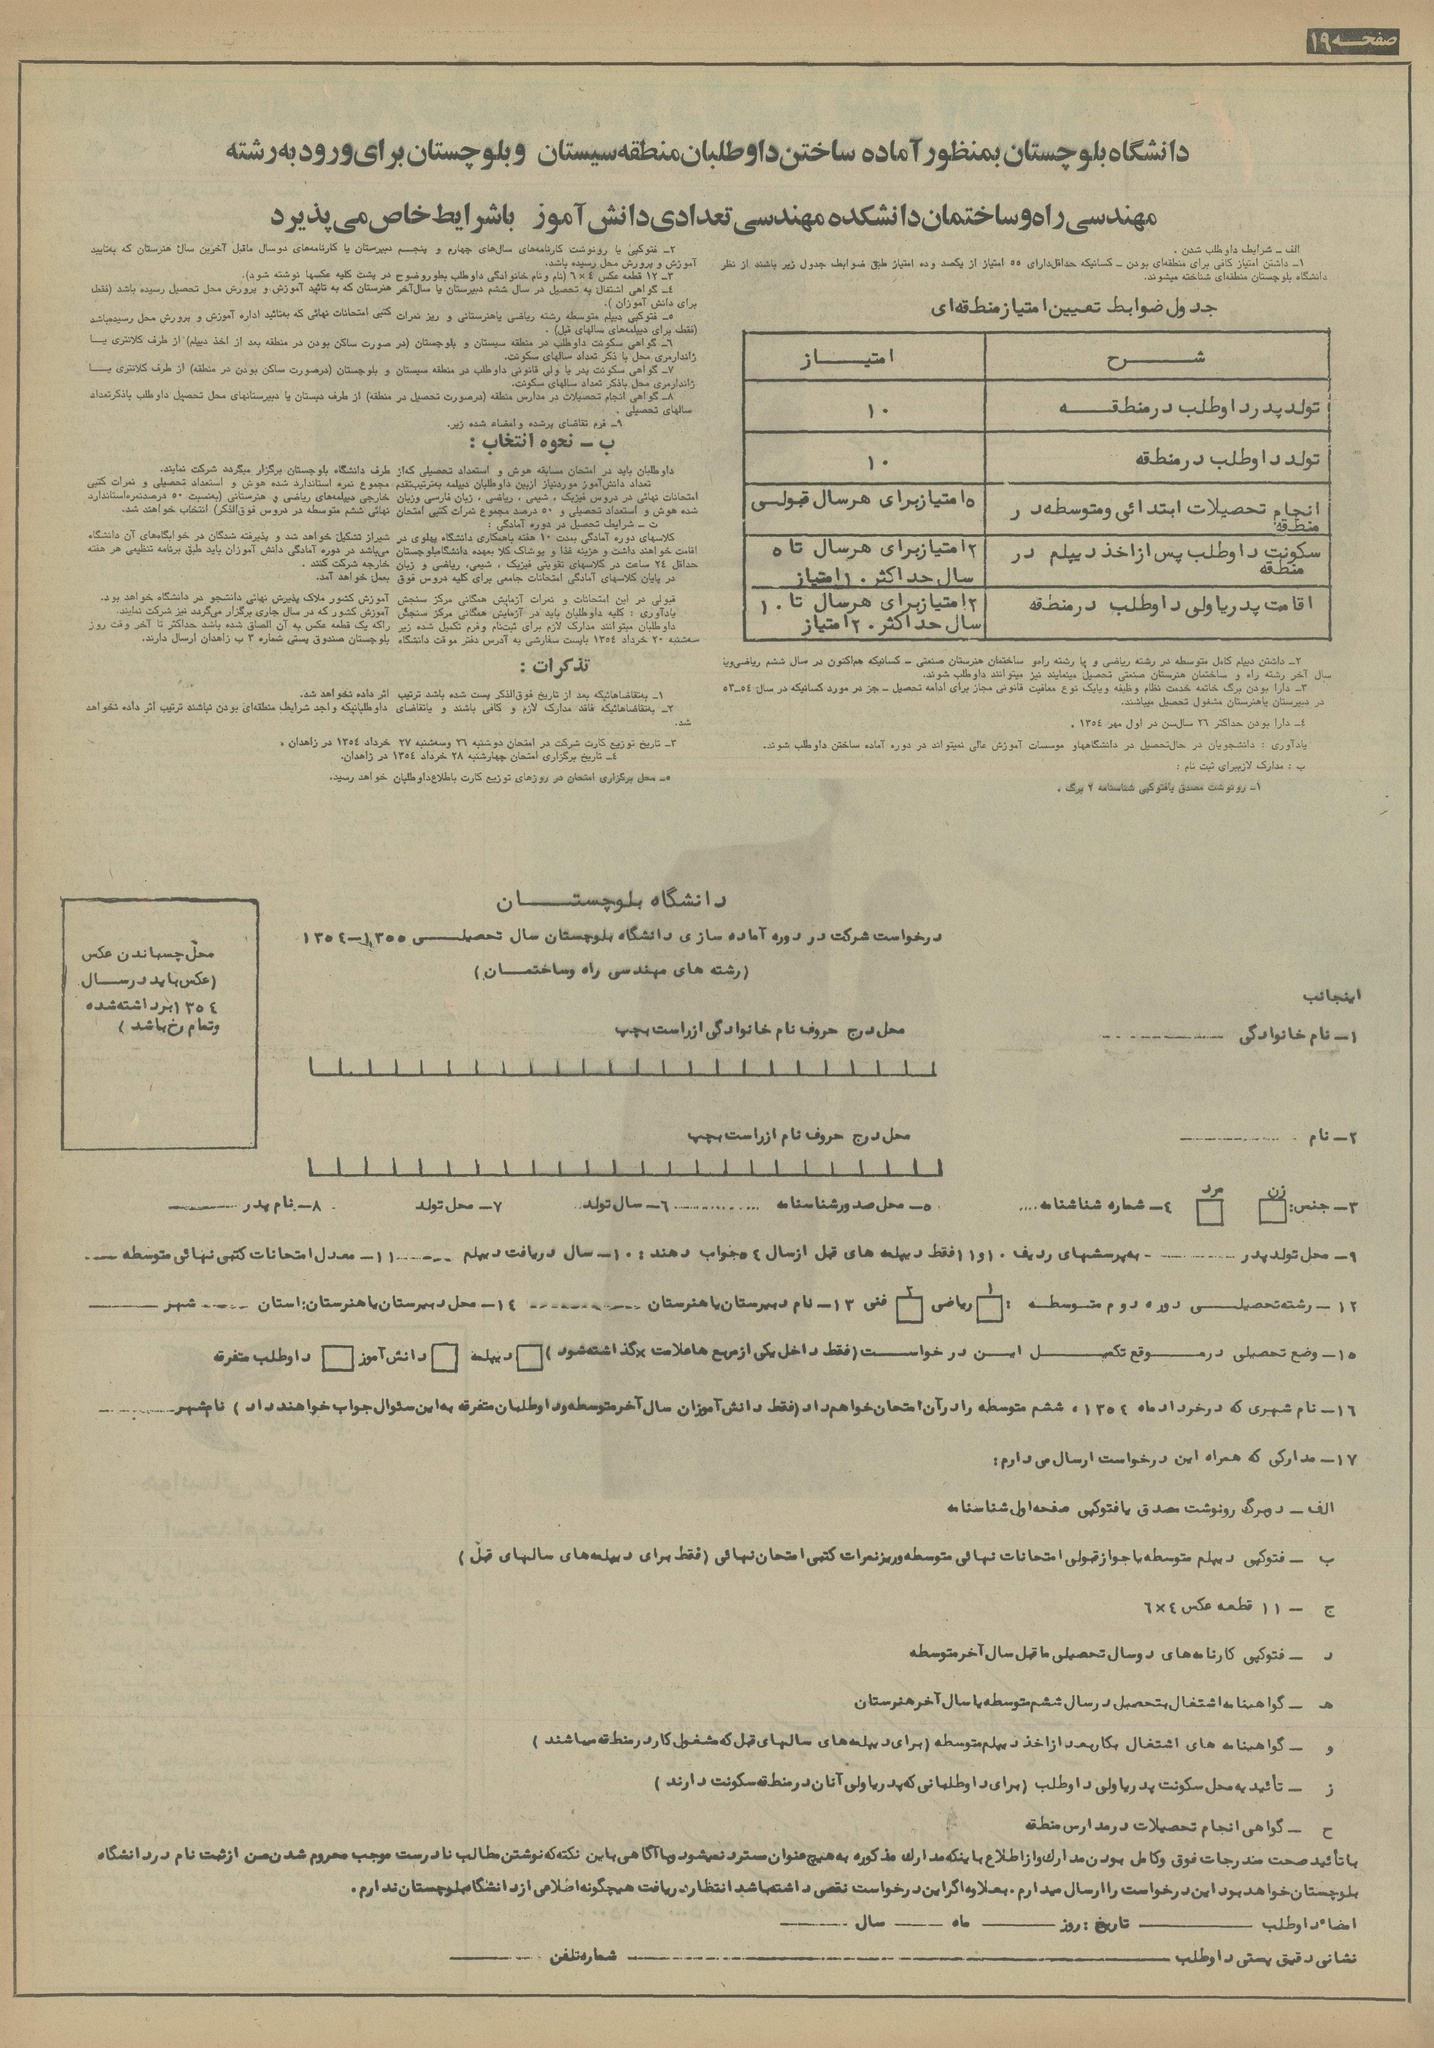 صفحه ۱۹
دانشگاه بلوچستان بمنظور آماده ساختن داوطلبان منطقه سیستان و بلوچستان برای ورود به رشته
مهندسی راه و ساختمان دانشکده مهندسی تعدادی دانش آموز باشرایط خاص می پذیرد
الف ــ شرایط داوطلب شدن .
۱ــ داشتن امتیاز کافی برای منطقه‌ای بودن ــ کسانیکه حداقل‌دارای ۵۵ امتیاز از یکصد و ده امتیاز طبق ضوابط جدول زیر باشند از نظر
دانشگاه بلوچستان منطقه‌ای شناخته میشوند.
جدول ضوابط تعیین امتیاز منطقه‌ای
شرح
امتیاز
تولد پدر داوطلب در منطقه
۱۰
تولد داوطلب در منطقه
۱۰
انجام تحصیلات ابتدائی و متوسطه در
منطقه
۵ امتیاز برای هر سال قبولی
سکونت داوطلب پس از اخذ دیپلم در
منطقه
۲ امتیاز برای هر سال تا ۵
سال حداکثر ۱۰ امتیاز
اقامت پدر یا ولی داوطلب در منطقه
۲ امتیاز برای هر سال تا ۱۰
سال حداکثر ۲۰ امتیاز
۲ــ داشتن دیپلم کامل متوسطه در رشته ریاضی و یا رشته راه‌و ساختمان هنرستان صنعتی ــ کسانیکه هم‌اکنون در سال ششم ریاضی‌ویا
سال آخر رشته راه و ساختمان هنرستان صنعتی تحصیل مینمایند نیز میتوانند داوطلب شوند.
۳ــ دارا بودن برگ خاتمه خدمت نظام وظیفه ویا‌یک نوع معافیت قانونی مجاز برای ادامه تحصیل ــ جز در مورد کسانیکه در سال ۵۴ــ۵۳
در دبیرستان یا‌هنرستان مشغول تحصیل میباشند.
۴ــ دارا بودن حداکثر ۲۶ سال‌سن در اول مهر ۱۳۵۴ .
یادآوری : دانشجویان در حال‌تحصیل در دانشگاهها‌و موسسات آموزش عالی نمیتواند در دوره آماده ساختن داوطلب شوند.
ب : مدارک لازم‌برای ثبت نام :
۱ــ رونوشت مصدق یا‌فتوکپی شناسنامه ۲ برگ .
۲ــ فتوکپی یا رونوشت کارنامه‌های سال‌های چهارم و پنجم دبیرستان یا کارنامه‌های دوسال ماقبل آخرین سال هنرستان که به‌تایید
آموزش و پرورش محل رسیده باشد.
۳ــ ۱۲ قطعه عکس ۴×۶ (نام و‌نام خانوادگی داوطلب بطور‌وضوح در پشت کلیه عکسها نوشته شود).
۴ــ گواهی اشتغال به تحصیل در سال ششم دبیرستان یا سال‌آخر هنرستان که به تائید آموزش و پرورش محل تحصیل رسیده باشد (فقط
برای دانش آموزان ).
۵ــ فتوکپی دیپلم متوسطه رشته ریاضی یا‌هنرستانی و ریز نمرات کتبی امتحانات نهائی که به‌تائید اداره آموزش و پرورش محل رسیده‌باشد
(فقط برای دیپلمه‌های سالهای قبل) .
۶ــ گواهی سکونت داوطلب در منطقه سیستان و بلوچستان (در صورت ساکن بودن در منطقه بعد از اخذ دیپلم) از طرف کلانتری یا
ژاندارمری محل با ذکر تعداد سالهای سکونت.
۷ــ گواهی سکونت پدر یا ولی قانونی داوطلب در منطقه سیستان و بلوچستان (درصورت ساکن بودن در منطقه) از طرف کلانتری یا
ژاندارمری محل با‌ذکر تعداد سالهای سکونت.
۸ــ گواهی انجام تحصیلات در مدارس منطقه (درصورت تحصیل در منطقه) از طرف دبستان یا دبیرستانهای محل تحصیل داوطلب با‌ذکر‌تعداد
سالهای تحصیلی .
۹ــ فرم تقاضای پرشده و‌امضاء شده زیر.
ب ــ نحوه انتخاب :
داوطلبان باید در امتحان مسابقه هوش و استعداد تحصیلی که‌از طرف دانشگاه بلوچستان برگزار میگردد شرکت نمایند.
تعداد دانش‌آموز موردنیاز ازبین داوطلبان دیپلمه به‌ترتیب‌تقدم مجموع نمره استاندارد شده هوش و استعداد تحصیلی و نمرات کتبی
امتحانات نهائی در دروس فیزیک ، شیمی ، ریاضی ، زبان فارسی وزبان خارجی دیپلمه‌های ریاضی و هنرستانی (به‌نسبت ۵۰ درصد‌نمره‌استاندارد
شده هوش و استعداد تحصیلی و ۵۰ درصد مجموع نمرات کتبی امتحان نهائی ششم متوسطه در دروس فوق‌الذکر) انتخاب خواهند شد.
ت ــ شرایط تحصیل در دوره آمادگی :
کلاسهای دوره آمادگی بمدت ۱۰ هفته باهمکاری دانشگاه پهلوی در شیراز تشکیل خواهد شد و پذیرفته شدگان در خوابگاه‌های آن دانشگاه
اقامت خواهند داشت و هزینه غذا و پوشاک کلا بعهده دانشگاه‌بلوچستان میباشد در دوره آمادگی دانش آموزان باید طبق برنامه تنظیمی هر هفته
حداقل ۲۴ ساعت در کلاسهای تقویتی فیزیک ، شیمی، ریاضی و زبان خارجه شرکت کنند .
در پایان کلاسهای آمادگی امتحانات جامعی برای کلیه دروس فوق بعمل خواهد آمد.
قبولی در این امتحانات و نمرات آزمایش همگانی مرکز سنجش آموزش کشور ملاک پذیرش نهائی دانشجو در دانشگاه خواهد بود.
یادآوری : کلیه داوطلبان باید در آزمایش همگانی مرکز سنجش آموزش کشور که در سال جاری برگزار میگردد نیز شرکت نمایند.
داوطلبان میتوانند مدارک لازم برای ثبت‌نام و‌فرم تکمیل شده زیر را‌که یک قطعه عکس به آن الصاق شده باشد حداکثر تا آخر وقت روز
سه‌شنبه ۲۰ خرداد ۱۳۵۴ با‌پست سفارشی به آدرس دفتر موقت دانشگاه بلوچستان صندوق پستی شماره ۳ ب زاهدان ارسال دارند.
تذکرات :
۱ــ به‌تقاضاهائیکه بعد از تاریخ فوق‌الذکر پست شده باشد ترتیب اثر داده نخواهد شد.
۲ــ به‌تقاضاهائیکه فاقد مدارک لازم و کافی باشند و یا‌تقاضای داوطلبانیکه واجد شرایط منطقه‌ای بودن نباشند ترتیب اثر داده نخواهد
شد.
۳ــ تاریخ توزیع کارت شرکت در امتحان دوشنبه ۲۶ وسه‌شنبه ۲۷ خرداد ۱۳۵۴ در زاهدان .
۴ــ تاریخ برگزاری امتحان چهارشنبه ۲۸ خرداد ۱۳۵۴ در زاهدان.
۵ــ محل برگزاری امتحان در روزهای توزیع کارت باطلاع‌داوطلبان خواهد رسید.
دانشگاه بلوچستان
درخواست شرکت در دوره آماده سازی دانشگاه بلوچستان سال تحصیلی ۱۳۵۵ــ۱۳۵۴
(رشته های مهندسی راه و‌ساختمان )
محل چسباندن عکس
(عکس باید در سال
۱۳۵۴ برداشته شده
و تمام رخ باشد )
اینجانب
۱ــ نام خانوادگی
محل درج حروف نام خانوادگی از راست بچپ
۲ــ نام
محل درج حروف نام از راست بچپ
۳ــ جنس: زن مرد ۴ــ شماره شناشنامه ۵ــ محل صدور شناسنامه ۶ــ سال تولد ۷ــ محل تولد ۸ــ نام پدر
۹ــ محل تولد پدر ــ به پرسشهای ردیف ۱۰ و ۱۱ فقط دیپلمه های قبل از سال ۵۴ جواب دهند : ۱۰ــ سال دریافت دیپلم ۱۱ــ معدل امتحانات کتبی نهائی متوسطه
۱۲ــ رشته تحصیلی دوره دوم متوسطه : ۱ ریاضی ۲ فنی ۱۳ــ نام دبیرستان یا هنرستان ۱۴ــ محل دبیرستان یا هنرستان: استان شهر
۱۵ــ وضع تحصیلی در موقع تکمیل این درخواست (فقط داخل یکی از مربع ها علامت × گذاشته شود ) دیپلمه دانش آموز داوطلب متفرقه
۱۶ــ نام شهری که در خرداد ماه ۱۳۵۴ ششم متوسطه را در آن امتحان خواهم داد (فقط دانش آموزان سال آخر متوسطه و داوطلبان متفرقه به این سئوال جواب خواهند داد ) نام شهر
۱۷ــ مدارکی که همراه این درخواست ارسال می دارم:
الف ــ دو برگ رونوشت مصدق یا فتوکپی صفحه اول شناسنامه
ب ــ فتوکپی دیپلم متوسطه یا جواز قبولی امتحانات نهائی متوسطه و ریز نمرات کتبی امتحان نهائی (فقط برای دیپلمه های سالهای قبل )
ج ــ ۱۱ قطعه عکس ۴×۶
د ــ فتوکپی کارنامه های دو سال تحصیلی ماقبل سال آخر متوسطه
هـ ــ گواهینامه اشتغال بتحصیل در سال ششم متوسطه یا سال آخر هنرستان
و ــ گواهینامه های اشتغال بکار بعد از اخذ دیپلم متوسطه (برای دیپلمه های سالهای قبل که مشغول کار در منطقه میباشند )
ز ــ تأئیدیه محل سکونت پدر یا ولی داوطلب (برای داوطلبانی که پدر یا ولی آنان در منطقه سکونت دارند )
ح ــ گواهی انجام تحصیلات در مدارس منطقه
با تأئید صحت مندرجات فوق و کامل بودن مدارک و از اطلاع باینکه مدارک مذکوره به هیچ عنوان مسترد نمیشود و با آگاهی باین نکته که نوشتن مطالب نادرست موجب محروم شدن من از ثبت نام در دانشگاه
بلوچستان خواهد بود این درخواست را ارسال میدارم . بعلاوه اگر این درخواست نقصی داشته باشد انتظار دریافت هیچگونه اطلاعی از دانشگاه بلوچستان ندارم .
امضاء داوطلب تاریخ : روز ماه سال
نشانی دقیق پستی داوطلب شماره تلفن